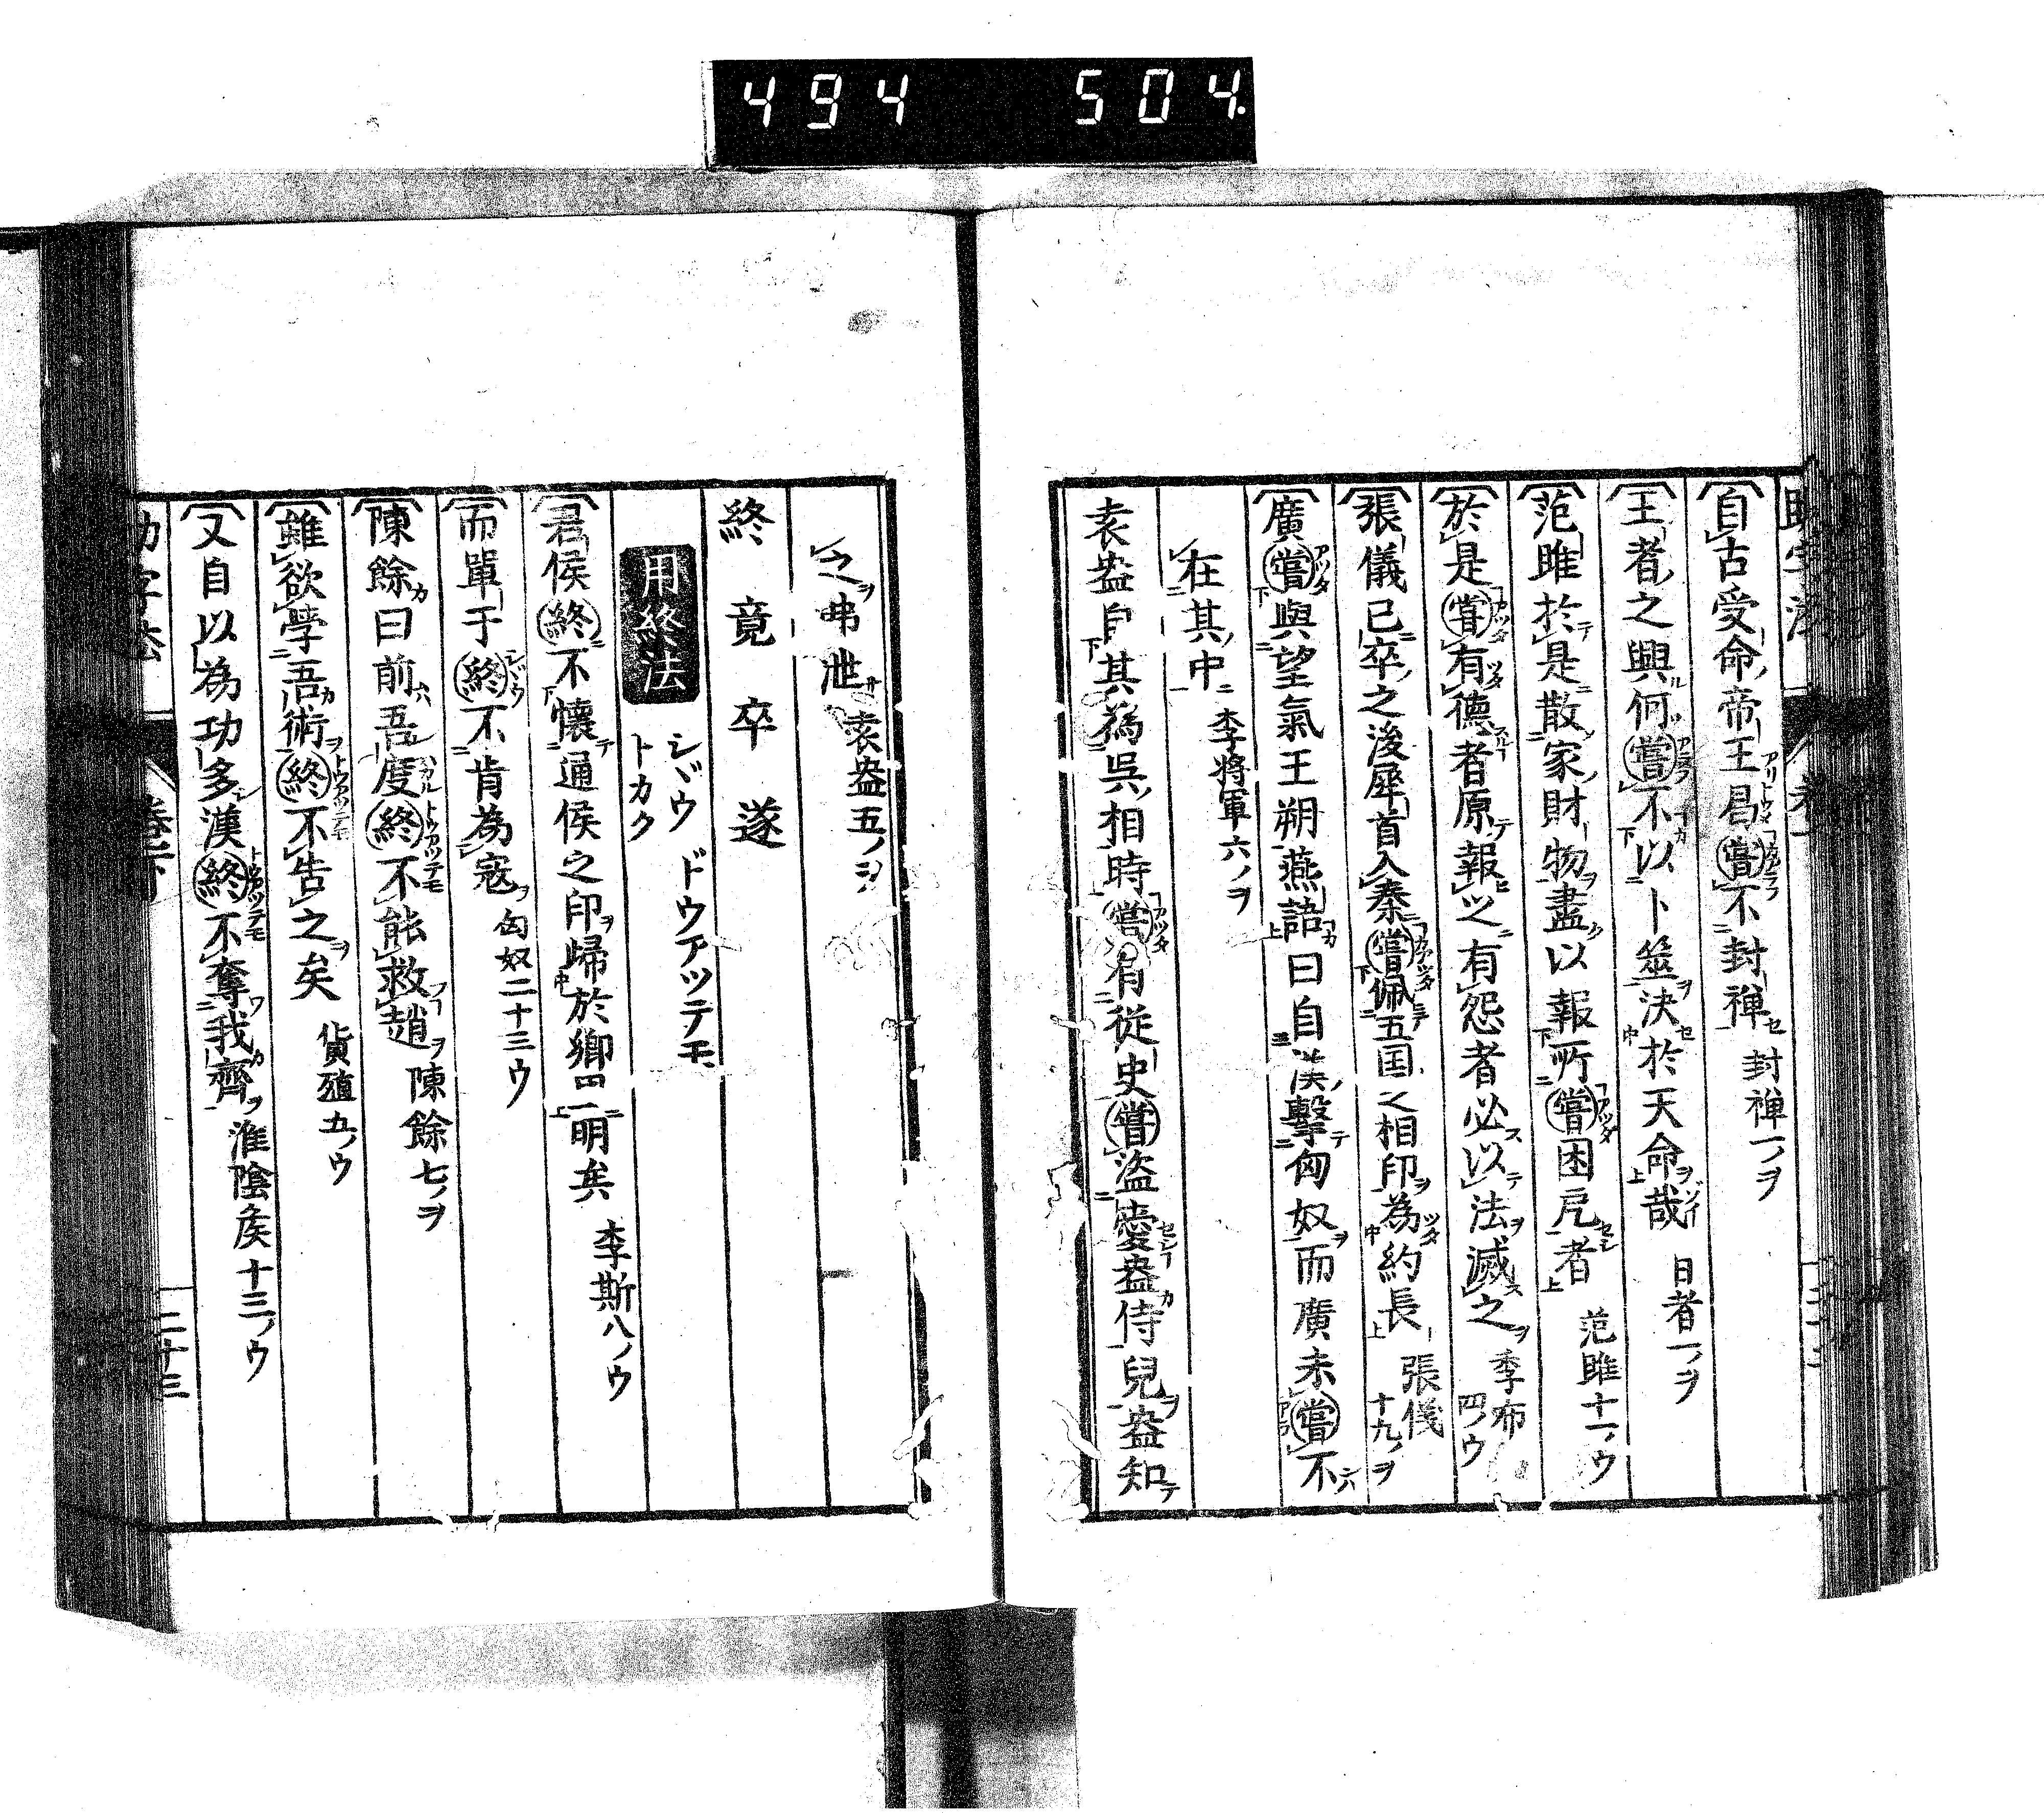 494 504
自古受命帝王曷嘗不封禅 封禅一ノヲ
王者之興何嘗不以卜筮決於天命哉 日者一ノヲ
范雎於是散家財物盡以報所嘗困戹者 范雎十一ノウ
於是嘗有德者原報之有怨者必以法滅之 季布四ノウ
張儀已卒之後犀首入秦嘗佩五国之相印為約長 張儀十九ノヲ
廣嘗與望氣王朔燕語曰自漢擊匈奴而廣未嘗不
在其中 李将軍六ノヲ
袁盎自其為呉相時嘗有従史嘗盗愛盎侍兒盎知
之弗泄 袁盎五ノヲ
終 竟 卒 遂
用終法 シヾウ ドウアツテモ
トカク
君侯終不懐通侯之印歸於郷里明矣 李斯八ノウ
而單于終不肯為寇 匈奴二十三ウ
陳餘曰前吾度終不能救趙 陳餘七ノヲ
雖欲學吾術終不告之矣 貨殖五ノウ
又自以為功多漢終不奪我齊 淮陰侯十三ノウ
二十三